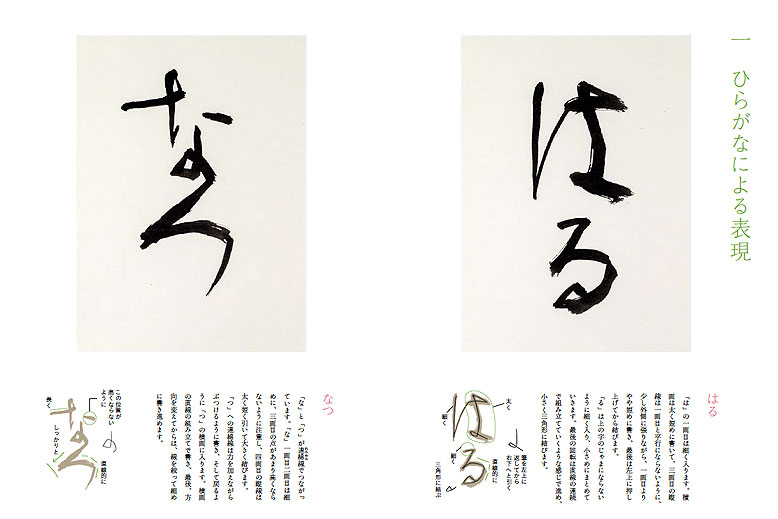 一 ひらがなによる表現
はる
はる
「は」の一画目は細く入ります。横
画は太く短めに書いて、三画目の縦
線は一画目と平行にならないように、
少し外側に張りながら、一画目より
やや短めに書き、最後は左上に押し
上げてから結びます。
「る」は上の字のじゃまにならない
ように細く入り、小さめにまとめて
いきます。最後の回転は直線の連続
で組み立てていくような感じで進め、
小さく三角形に結びます。
太く
細く
細く
筆を左上に
返してから
右下へと引く
直線的に
三角形に結ぶ
なつ
なつ
「な」と「つ」が連綿線でつながっ
ています。「な」一画目二画目は細
めに、三画目の点があまり高くなら
ないように注意し、四画目の縦線は
太く短く引いて大きく結びます。
「つ」への連綿線は力を加えながら
ぶつけるように書き、そして戻るよ
うに「つ」の横画に入ります。横画
の直線の組み立てで書き、最後、方
向を変えてからは、線を絞って細め
に書き進めます。
この位置が
高くならない
ように
長く
しっかりと
直線的に